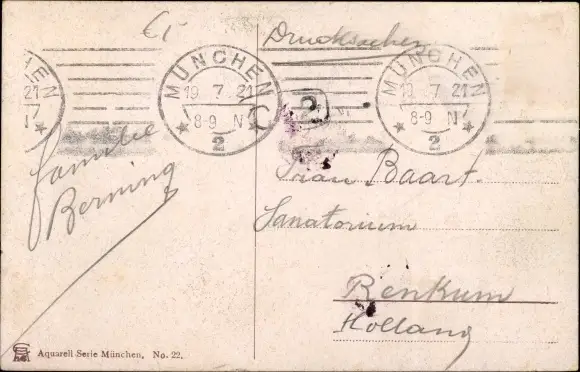 €5
Drucksachen
MÜNCHEN
19 7 21
8-9 N
2
MÜNCHEN
19 7 21
8-9 N
2
Familie
Berning
Baart.
Sanatorium
Renkum
Holland
Aquarell Serie München, No. 22.